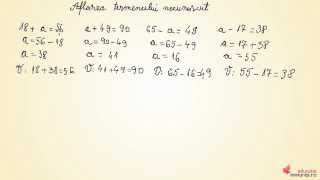 Aflarea termenului necunoscut
18 + a = 56 a + 49 = 90 65 - a = 49 a - 17 = 38
a = 56 - 18 a = 90 - 49 a = 65 - 49 a = 17 + 38
a = 38 a = 41 a = 16 a = 55
V: 18 + 38 = 56 V: 41 + 49 = 90 V: 65 - 16 = 49 V: 55 - 17 = 38